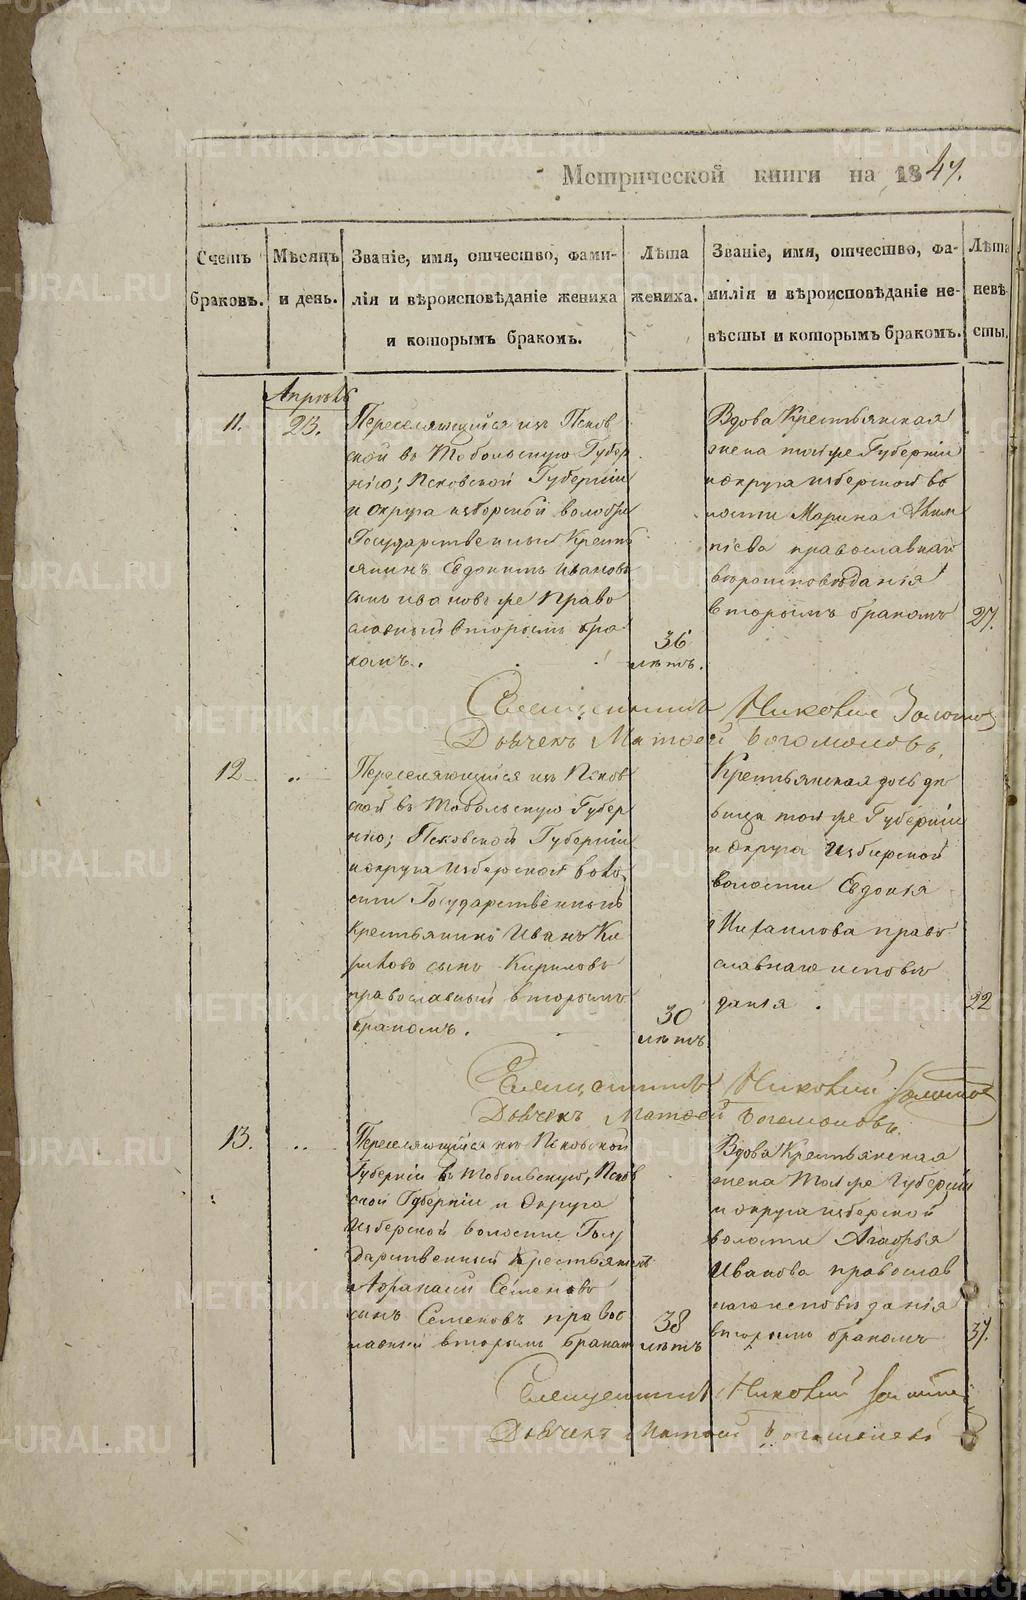 Метрической книги на 1847.
Счетъ браковъ.
Мѣсяцъ и день.
Званіе, имя, отчество, фами-
лія и вѣроисповѣданіе жениха
и которымъ бракомъ.
Лѣта
жениха.
Званіе, имя, отчество, фа-
милія и вѣроисповѣданіе не-
вѣсты и которымъ бракомъ.
Лѣта
невѣ-
сты.
Апрель
11.
23.
Переселяющийся изъ Псков
ской въ Тобольскую Губер
нію; Псковской Губерніи
и округа изборской волости
Государственный Кресть
янинъ Евдокимъ Ивановъ
сынъ ивановъ же Право
славный вторымъ бра
комъ.
36
лѣтъ.
Вдова Крестьянская
жена той же Губерніи
и округа изберской во
лости Марина
православнаго
вѣроисповѣданія
вторымъ бракомъ
27.
Священникъ Никовій
Дьячекъ Матвей Богомоловъ
12
„
Переселяющийся изъ Псков
ской въ Тобольскую Губер
нію; Псковской Губерніи
и округа изберской воло
сти Государственный
крестьянинъ Иванъ Ки
риловъ сынъ Кириловъ
православный вторымъ
бракомъ.
30
лѣтъ.
Крестьянская дочь де
вица той же Губерніи
и округа Изберской
волости Евдокія
Михаилова право
славнаго исповѣ
данія.
22
Священникъ Никовій
Дьячекъ Матвей Богомоловъ
13.
„
Переселяющийся изъ Псковской
Губерніи въ Тобольскую, Псков
ской Губерніи и Округа
Изберской волости Госу
дарственный Крестьянинъ
Афанасий Семеновъ
сынъ Семеновъ правос
лавный вторымъ бракомъ
38
лѣтъ
Вдова Крестьянская
жена той же Губерніи
и округа изберской
волости Агафья
Иванова православ
наго исповѣданія
вторымъ бракомъ
37.
Священникъ Никовій
Дьячекъ Матвей Богомоловъ
METRIKI.GASO-URAL.RU